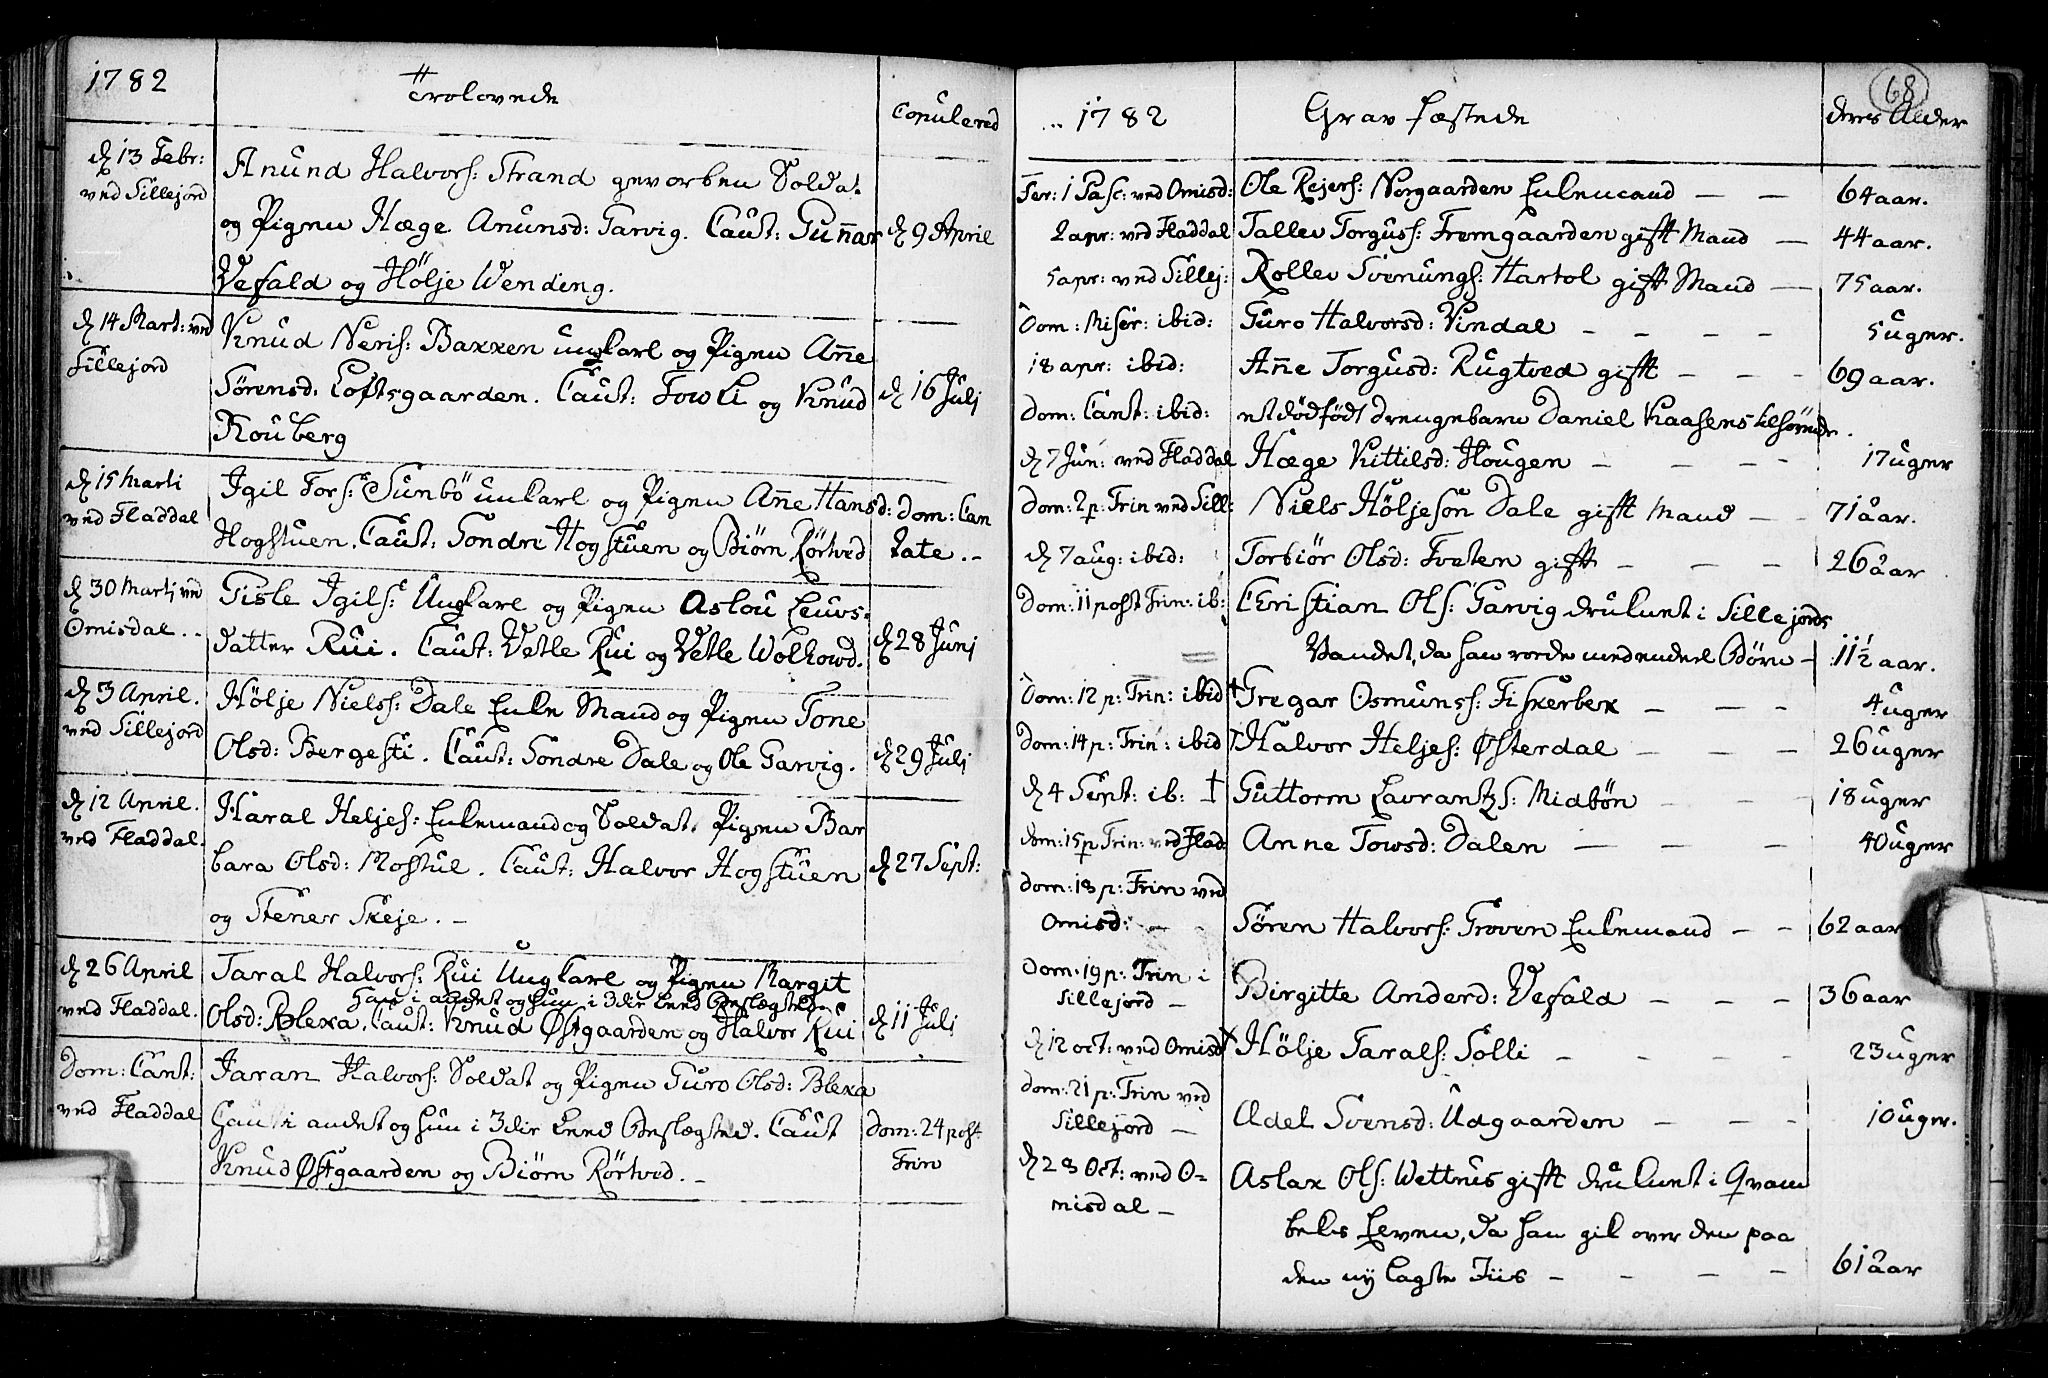 1782
Trolovede
Copulered
d 13 Febr:
ved Sillejord
Anund Halvors: Strand gevorben Soldat
og Pigen Hæge Anunsd: Tarvig. Caut: Guñar
Vefald og Hölje Wending.
d 9 April
d 14 Mart: ved
Sillejord
Knud Neris: Baxxen unkarl og Pigen Añe
Sörensd: Loftsgaarden. Caut: Tow Li og Knud
Rouberg
d 16 Julj
d 15 Marti
ved Fladdal
Igil Tors: Sunbö unkarl og Pigen Añe Hansd:
Hogstuen. Caut: Sondre Hogstuen og Biörn Rörtved
Dom: Can
tate.
d 30 Martj ved
Omisdal.
Gisle Igils: Ungkarl og Pigen Aslou Leuvs-
datter Rui. Caut: Vetle Rui og Vetle Wolkowd.
d 28 Junj
d 3 April.
ved Sillejord
Hölje Nielss: Dale Enke Mand og Pigen Tone
Olsd: Bergesti. Caut: Sondre Dale og Ole Garvig.
d 29 Julj
d 12 April.
ved Fladdal.
Haral Heljes: Enkemand og Soldat. Pigen Bar
bara Olsd: Mostul. Caut: Halvor Hogstuen
og Stener Skeje.
d 27 Sept:
d 26 April
ved Fladdal.
Taral Halvors: Rui Ungkarl og Pigen Margit
han i andet og hun i 3die Leed Beslægted.
Olsd: Blexa. Caut: Knud Østgaarden og Halvor Rui
d 11 Julj
Dom: Cant:
ved Fladdal
Jaran Halvors: Soldat og Pigen Guro Olsd: Blexa
han i andet og hun i 3die Leed Beslægted. Caut
Knud Østgaarden og Biörn Rörtved.
Dom: 24 post
Trin
68
1782
Grav fæstede
deres Alder
Fer: 1 Pasc: ved Omisd: Ole Rejers: Norgaarden Enkemand 64 aar.
2 apr: ved Fladdal Tallev Torguss: Fremgaarden gift Mand 44 aar.
5 apr: ved Sillej: Rollev Svenungs: Hartol gift Mand 75 aar.
Dom: Miser: ibid: Guro Halvorsd: Vindal 5 uger.
18 apr: ibid: Añe Torgusd: Rugtved gift 69 aar.
Dom: Cant: ibid: et dödfödt drengebarn Daniel Kaasens tilhörende.
d 7 Jun: ved Fladdal Hæge Kittilsd: Hougen 17 uger
Dom: 2 p: Trin ved Sill: Niels Höljesön Dale gift Mand 71 aar.
d 7 aug: ibid: Torbiör Olsd: Fosten gift 26 aar
Dom: 11 post Trin: ib: Christian Ols: Garvig druknet i Sillejords
Vandet, da han roede med endeel Börn 11½ aar.
Dom: 12 p: Trin: ibid † Gregar Osmunss: Fiskerbex 4 uger
Dom: 14 p: Trin: ibid † Halvor Heljes: Østerdal 26 uger
d 4 Sept: ib: † Guttorm Lavrantzs: Midbön 18 uger
dom: 15 p Trin: ved Flad: Anne Towsd: Dalen 40 uger
dom: 18 p: Trin ved
Omisd: Sören Halvors: Groven Enkemand 62 aar
Dom: 19 p: Trin i
Sillejord Birgitte Anderd: Vefald 36 aar
d 12 oct: ved Omisd † Hölje Tarals: Solli 23 uger
dom: 21 p: Trin ved
Sillejord Adel Svensd: Udgaarden 10 uger.
d 28 Oct: ved O-
misdal Aslax Ols: Wettrus gift druknet i Qvam
beks Elven, da han gik over den paa
den nylagte Iis 61 aar